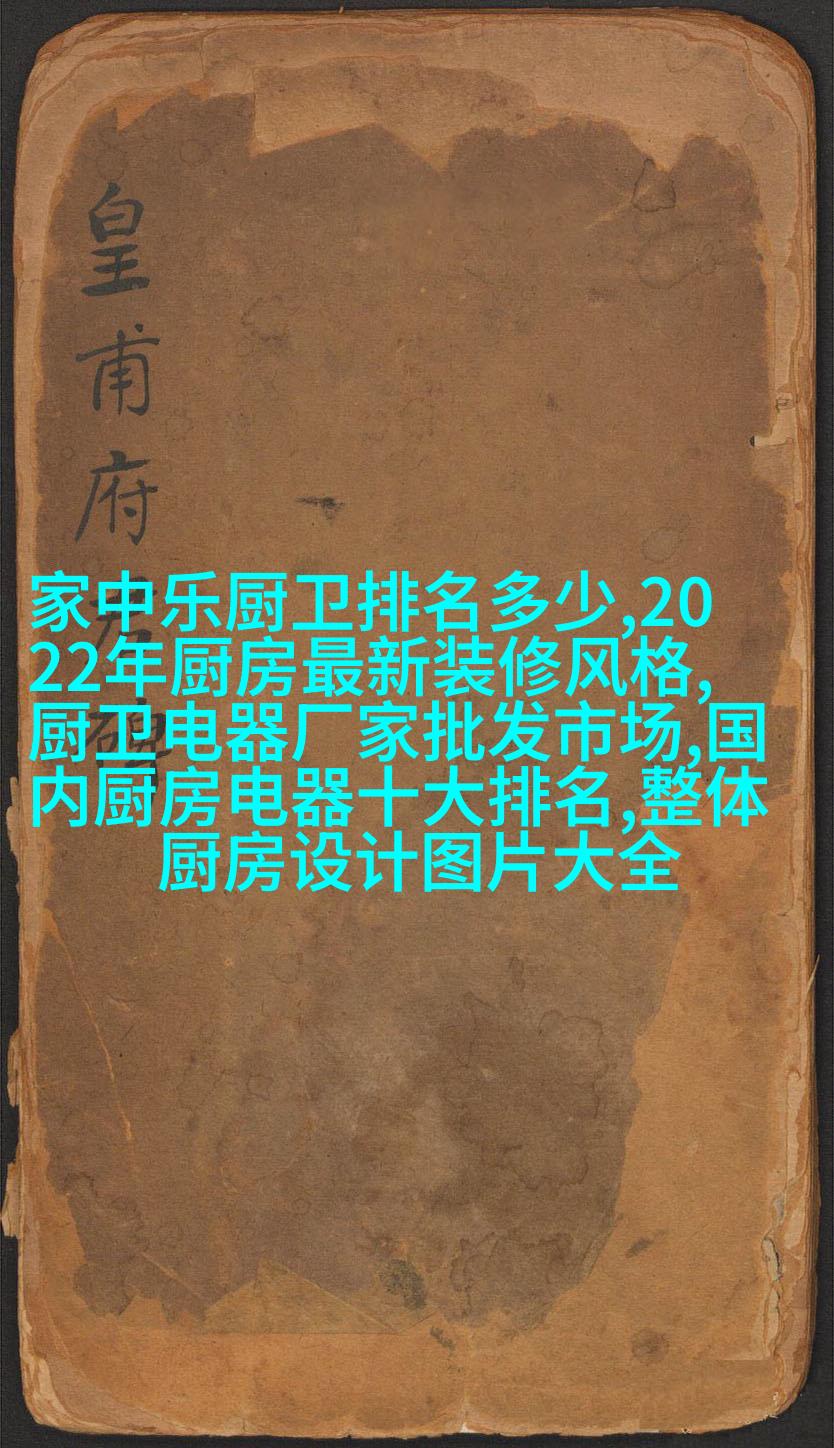 皇甫府君碑
家中乐厨卫排名多少,20
22年厨房最新装修风格,
厨卫电器厂家批发市场,国
内厨房电器十大排名,整体
厨房设计图片大全